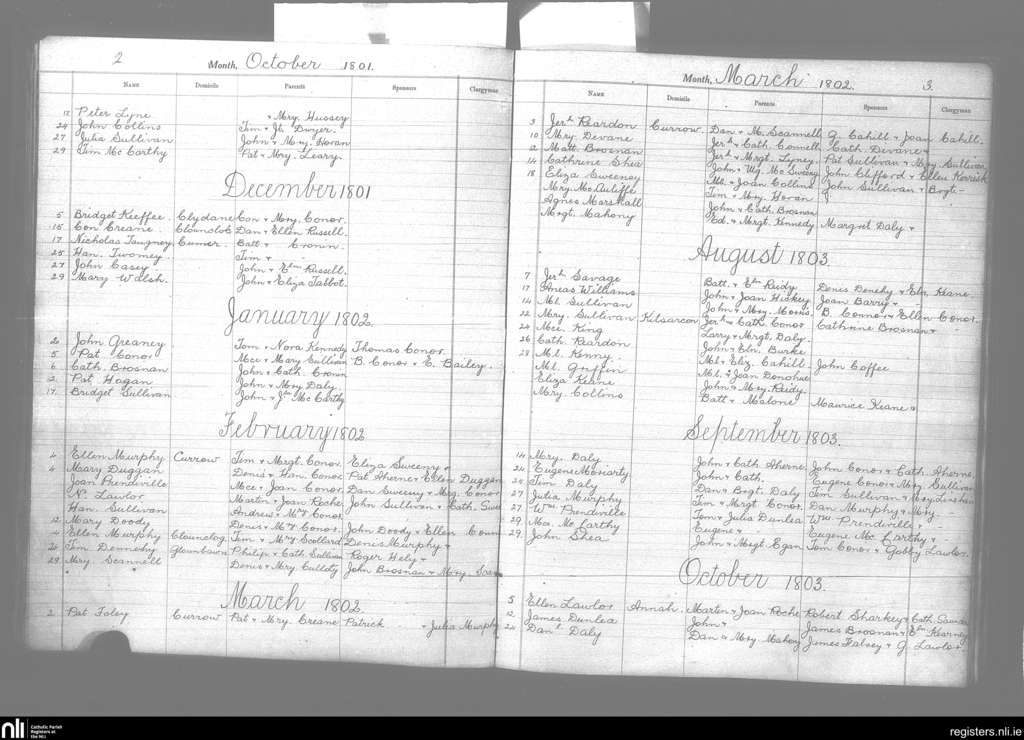 2 Month, October 1801.
Name Domicile Parents Sponsors Clergyman
17 Peter Lyne " Mry. Hussey
24 John Collins Tim + Jh. Dwyer.
27 Julia Sullivan John + Mary. Horan
29 Tim Mc Carthy Pat + Mry. Leary.
December 1801
5 Bridget Keeffee. Clydane Con + Mry. Conor.
15 Con Creane. Dan + Ellen Russell.
17 Nicholas Tangney Cumer. Batt + Cronin.
25 Han. Twomey. Tim +
27 John Casey. John + Eln Russell.
29 Mary Walsh. John + Eliza Talbot.
January 1802.
2 John Greaney Tom + Nora Kennedy Thomas Conor.
5 Pat Conor Mce + Mary Sullivan B. Conor + E. Bailey.
6 Cath. Brosnan John + Cath. Cronin
Pat Hogan John + Mry Daly.
17 Bridget Sullivan John + Mc Carthy
February 1802
4 Ellen Murphy Currow Tim + Mrgt. Conor. Eliza Sweeny +
4 Mary Duggan Denis + Han. Conor Pat Aherne + Ellen Duggan
Joan Prendiville Mce + Joan Conor. Dan Sweeny + Mrg. Conor
N. Lawlor Martin + Joan Roche John Sullivan + Cath.
Han. Sullivan Andrew + Mry Conor
12 Mary Doody Denis + Mry Conor. John Doody + Ellen Conn
4 Ellen Murphy Tim + Mry Scollard Denis Murphy +
20 Tim Dennehy Glountawn Philip + Cath. Sullivan Roger Hely +
29 Mry Scannell Denis + Mry Culloty John Brosnan + Mry.
March 1802.
2 Pat Foley Currow Pat + Mry. Creane Patrick + Julia Murphy
Month, March 1802. 3.
Name Domicile Parents Sponsors Clergyman
3 Jerh Reardon Currow. Dan + M. Scannell G. Cahill + Joan Cahill.
10 Mry. Devane Jerh + Cath. Connell Cath. Devane +
12 Matt Brosnan Jerh + Mrgt. Lyney. Pat Sullivan + Mry Sullivan
14 Cathrine Shea John + Mg. Mc Sweeny John Clifford + Ellen
18 Eliza Sweeney Ml. + Joan Collins John Sullivan + Brgt.
Mry. Mc Auliffe Tim + Mry Horan
Agnes Marshall John + Cath. Brosnan
Mrgt Mahony Ed. + Mrgt. Kennedy Margret Daly +
August 1803
7 Jerh Savage Batt. + Eln Reidy Denis Denehy + Eln. Keane
17 Aneas Williams John + Joan Hickey Joan Barry +
14 Ml. Sullivan John + Mry B. Connor + Ellen Conor.
22 Mry. Sullivan Kilsarcon Jerh + Cath. Conor Cathrine Brosnan +
24 Mce. King Larry + Mrgt. Daly.
26 Cath. Reardon John + Eln. Burke
28 Ml. Kenny. Ml + Eliz. Cahill John Coffee
Ml. Griffin Ml. + Joan Donohue
Eliza Keane John + Mry Reidy.
Mry. Collins Batt + Malone Maurice Keane +
September 1803.
14 Mry. Daly John + Cath. Aherne John Conor + Cath. Aherne.
24 Eugene Moriarty John + Cath. Eugene Conor + Mry Sullivan
25 Tim Daly Dan + Brgt. Daly Tim Sullivan +
27 Julia Murphy Tim + Mrgt Conor. Dan Murphy + Mry.
27 Wm. Prendiville Tom + Julia Dunlea Wm. Prendiville +
29 Mc Carthy Eugene + Eugene Mc Carthy +
29. John Shea John + Mrgt Egan Tom Conor + Gobby Lawlor.
October 1803.
5 Ellen Lawlor Annah. Martin + Joan Roche Robert Sharkey + Cath.
12 James Dunlea John + James Brosnan + Eln Kearney
24 Danl. Daly Dan + Mry Mahony James Falvey + G. Lawlor.
nli
Catholic Parish
Registers at
the NLI
registers.nli.ie